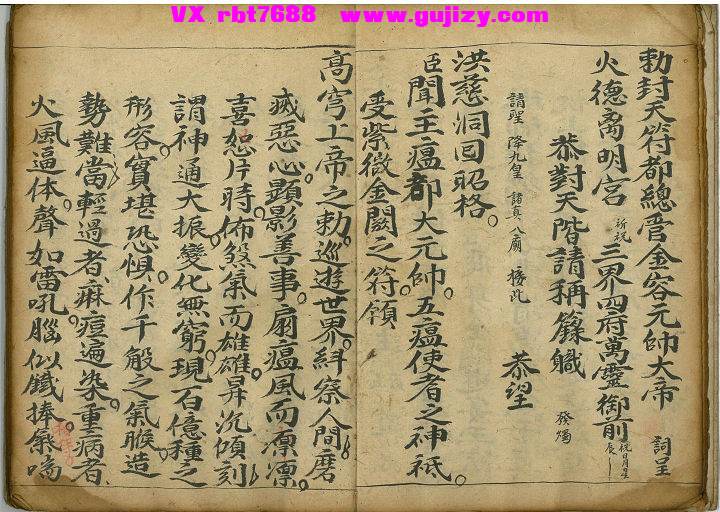 VX rbt7688 www.gujizy.com
勅封天符都總管金容元帥大帝 詞呈
火德离明宮 祈祝 三界四府萬靈御前
恭對天階請稱籙職 發燭
恭望
請聖 降九皇 諸真 接此
洪慈洞回昭格
臣聞主瘟都大元帥五瘟使者之神祇
受紫微金闕之符領
高穹上帝之勅巡遊世界糾察人間磨
滅惡心顯影善事扇瘟風而凛凛
喜恕片時佈煞氣而雄雄昇沉傾刻
謂神通大振變化無窮現百億種之
形容實堪恐惧作千般之氣候造
勢難當輕過者麻痘遍染重病者
火風逼体聲如雷吼腦似鐵捧氣喘